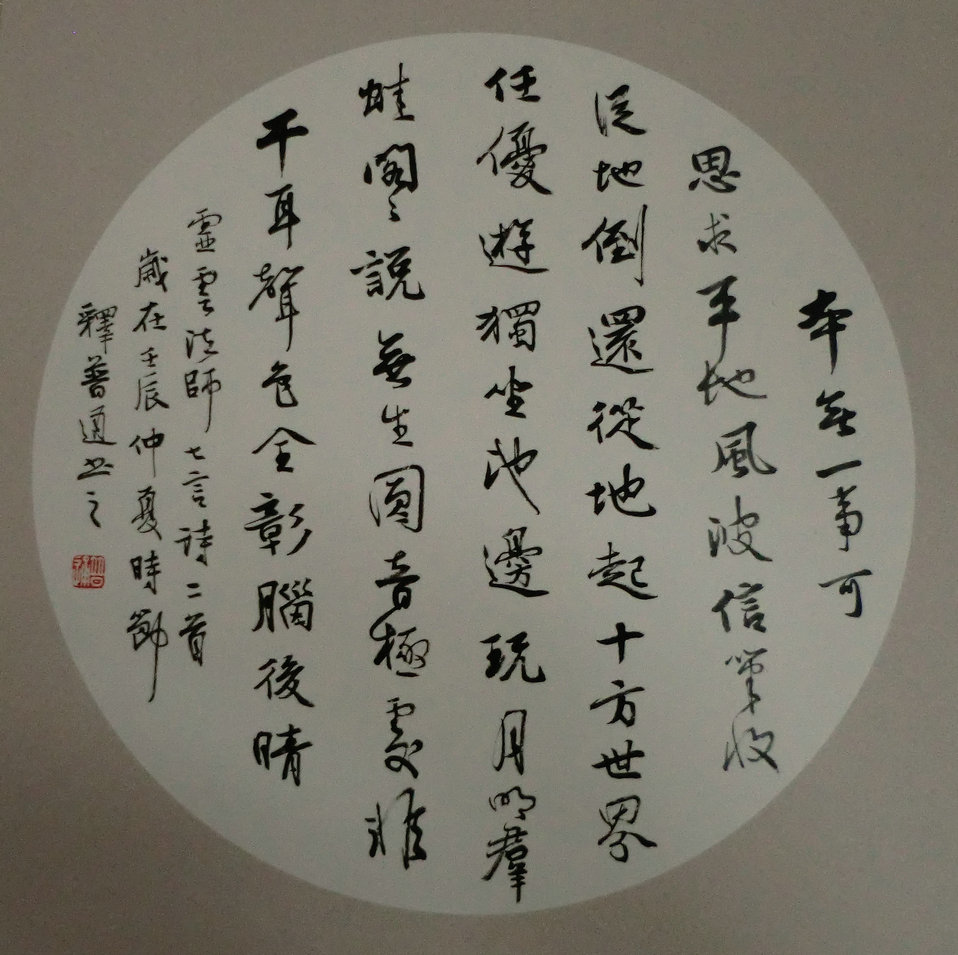 本無一事可
思求平地風波信筆收
從地倒還從地起十方世界
任優遊獨坐池邊玩月明羣
蛙閣〻說無生圓音極處非
干耳聲色全彰腦後晴
靈雲法師七言詩二首
歲在壬辰仲夏時節
釋普通書之